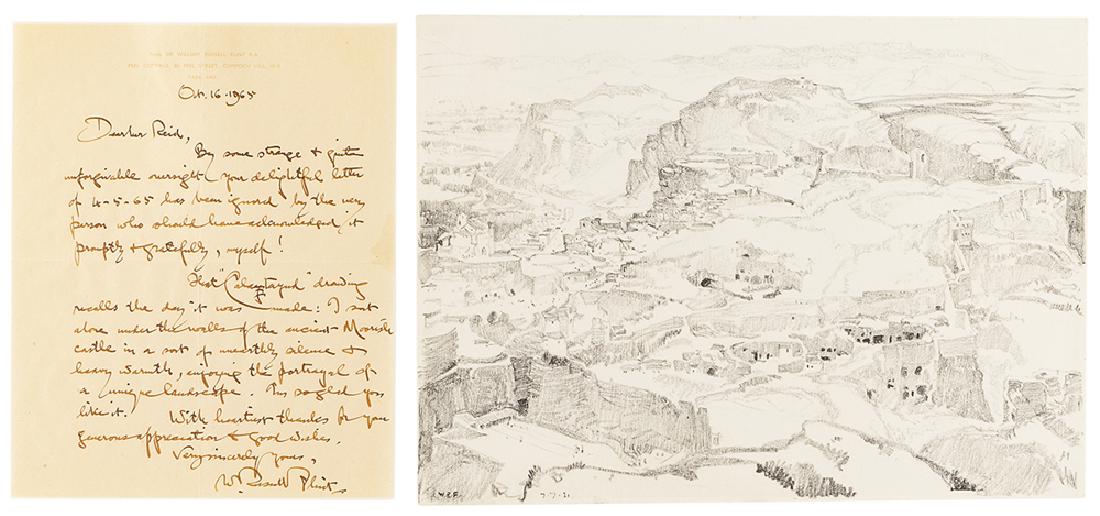 From SIR WILLIAM RUSSELL FLINT R.A.
PEEL COTTAGE, 80 PEEL STREET, CAMPDEN HILL, W.8
PARK
Oct. 16 · 1965
Dear Mr Reid,
By some strange & quite
unforgivable oversight your delightful letter
of 4-5-65 has been ignored by the very
person who should have acknowledged it
promptly & gratefully, myself!
That "Calatayud" drawing
recalls the day it was made: I sat
alone under the walls of the ancient Moorish
castle in a sort of unearthly silence &
heavy warmth, enjoying the portrayal of
a unique landscape. I'm so glad you
like it.
With heartiest thanks for your
generous appreciation & good wishes,
Very sincerely yours,
W. Russell Flint
W.R.F.